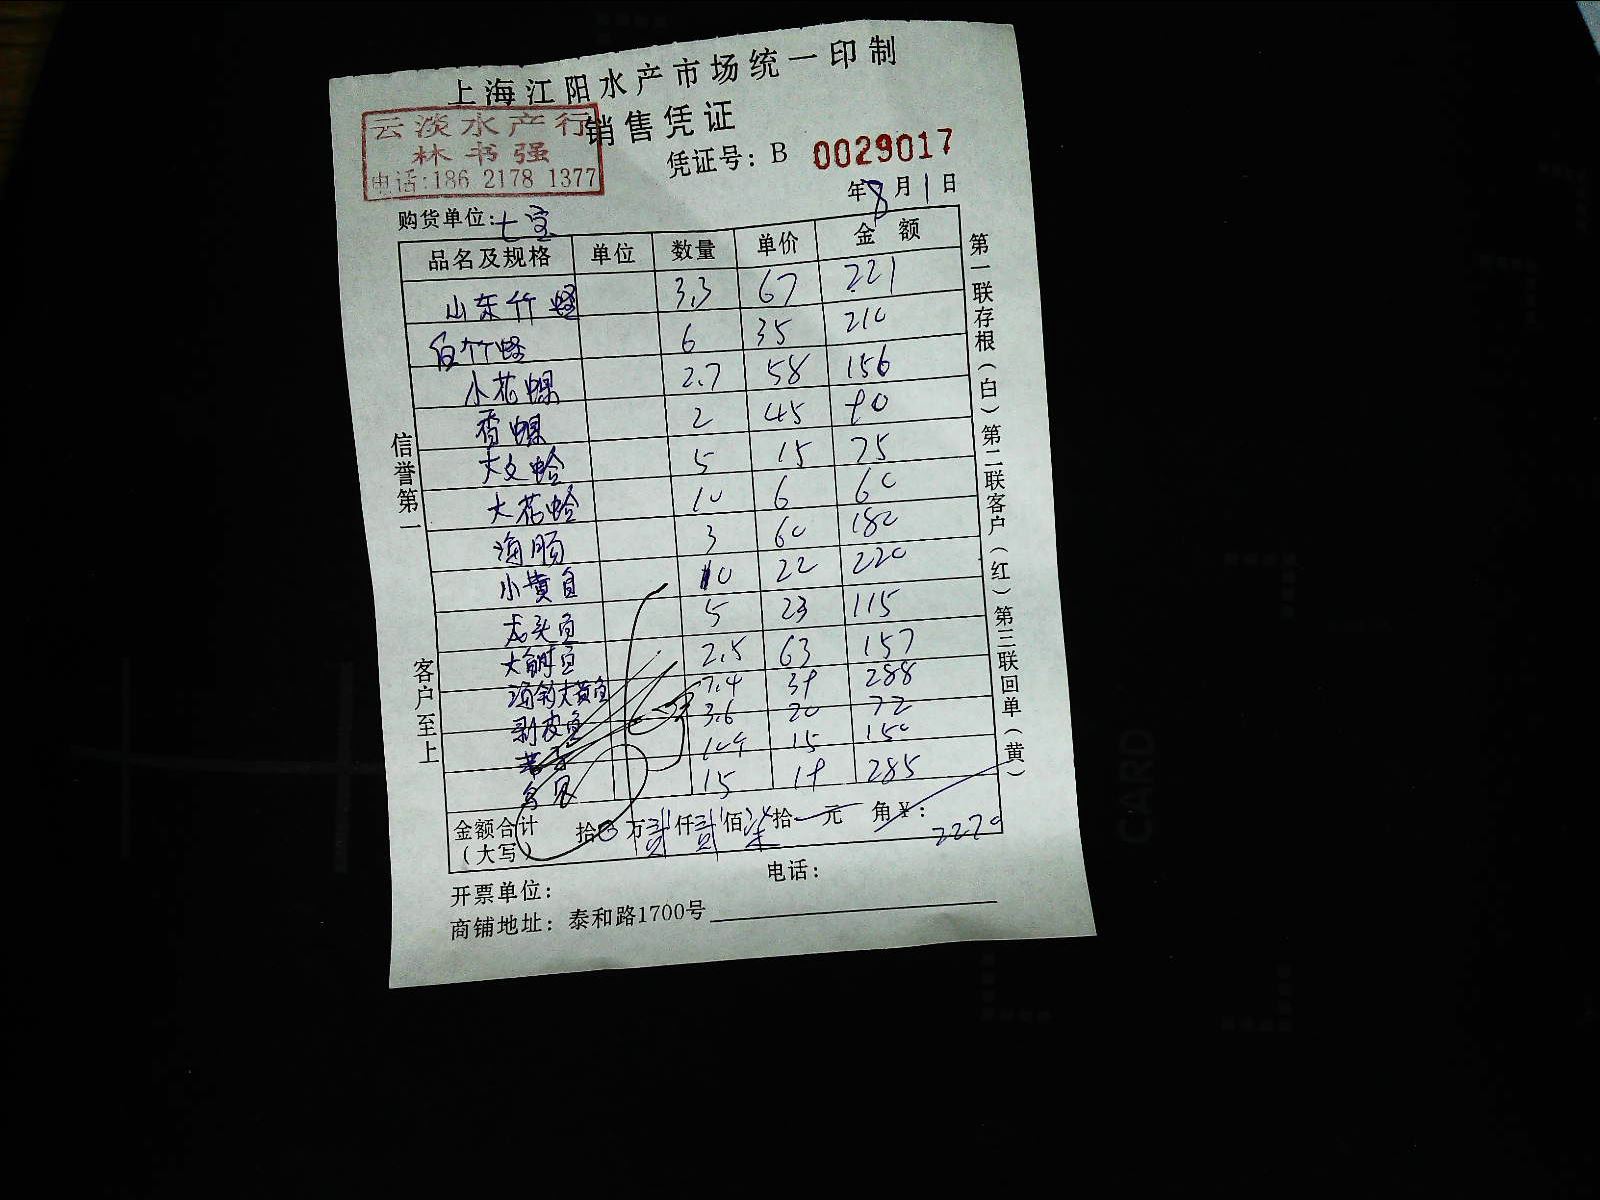 上海江阳水产市场统一印制
销售凭证
云淡水产行
林书强
电话:186 2178 1377
凭证号：B 0029017
年8月1日
购货单位:七宝
品名及规格 单位 数量 单价 金额
山东竹蛏 3.3 67 221
白竹蛏 6 35 210
小花螺 2.7 58 156
香螺 2 45 90
大文蛤 5 15 75
大花蛤 10 6 60
海肠 3 60 180
小黄鱼 10 22 220
龙头鱼 5 23 115
大鲥鱼 2.5 63 157
海钓大黄鱼 7.4 39 288
剥皮鱼 3.6 20 72
10.4 15 150
15 19 285
金额合计（大写） 拾 万贰仟贰佰柒拾 元 角¥：2270
开票单位：
电话：
商铺地址：泰和路1700号
信誉第一
客户至上
第一联存根（白）第二联客户（红）第三联回单（黄）
CARD